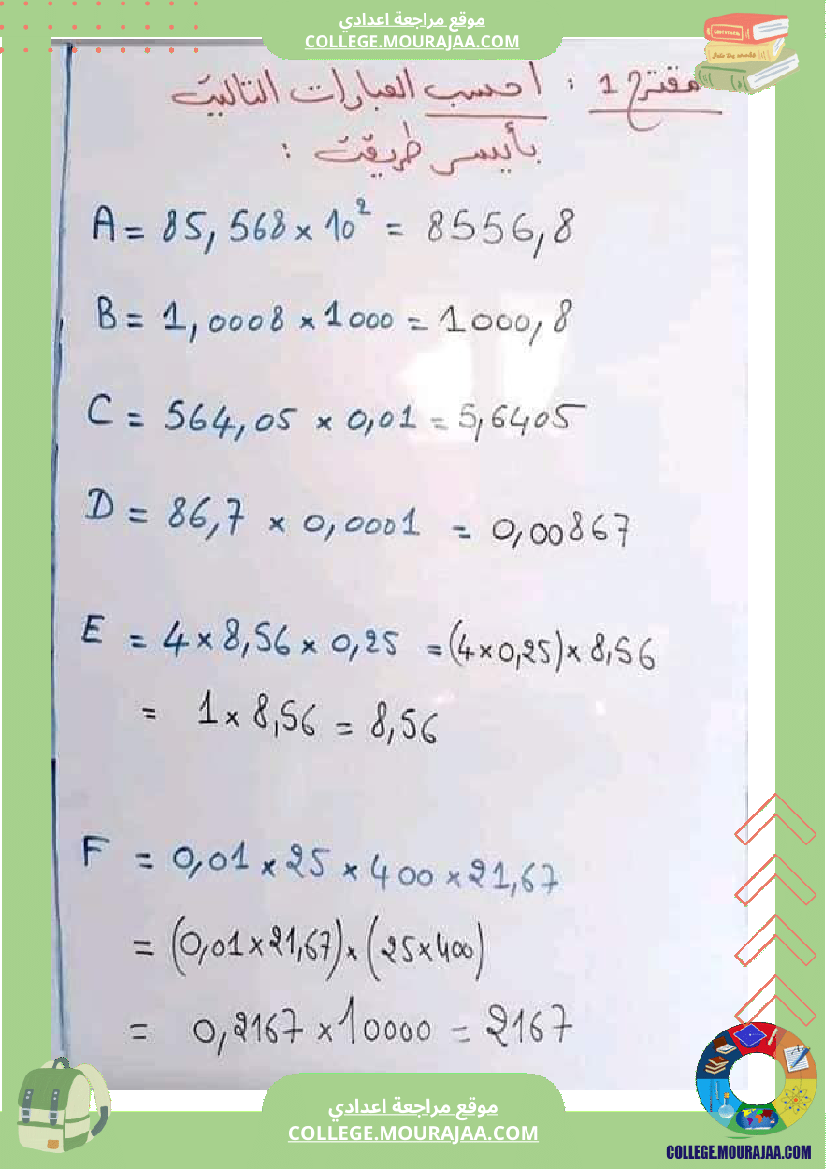 موقع مراجعة اعدادي
COLLEGE.MOURAJAA.COM
مقترح 1 : أحسب العبارات التالية
بأيسر طريقة :
A = 85,568 × 10² = 8556,8
B = 1,0008 × 1000 = 1000,8
C = 564,05 × 0,01 = 5,6405
D = 86,7 × 0,0001 = 0,00867
E = 4 × 8,56 × 0,25 = (4×0,25)× 8,56
= 1 × 8,56 = 8,56
F = 0,01 × 25 × 400 × 21,67
= (0,01×21,67)×(25×400)
= 0,2167 × 10000 = 2167
موقع مراجعة اعدادي
COLLEGE.MOURAJAA.COM
COLLEGE.MOURAJAA.COM